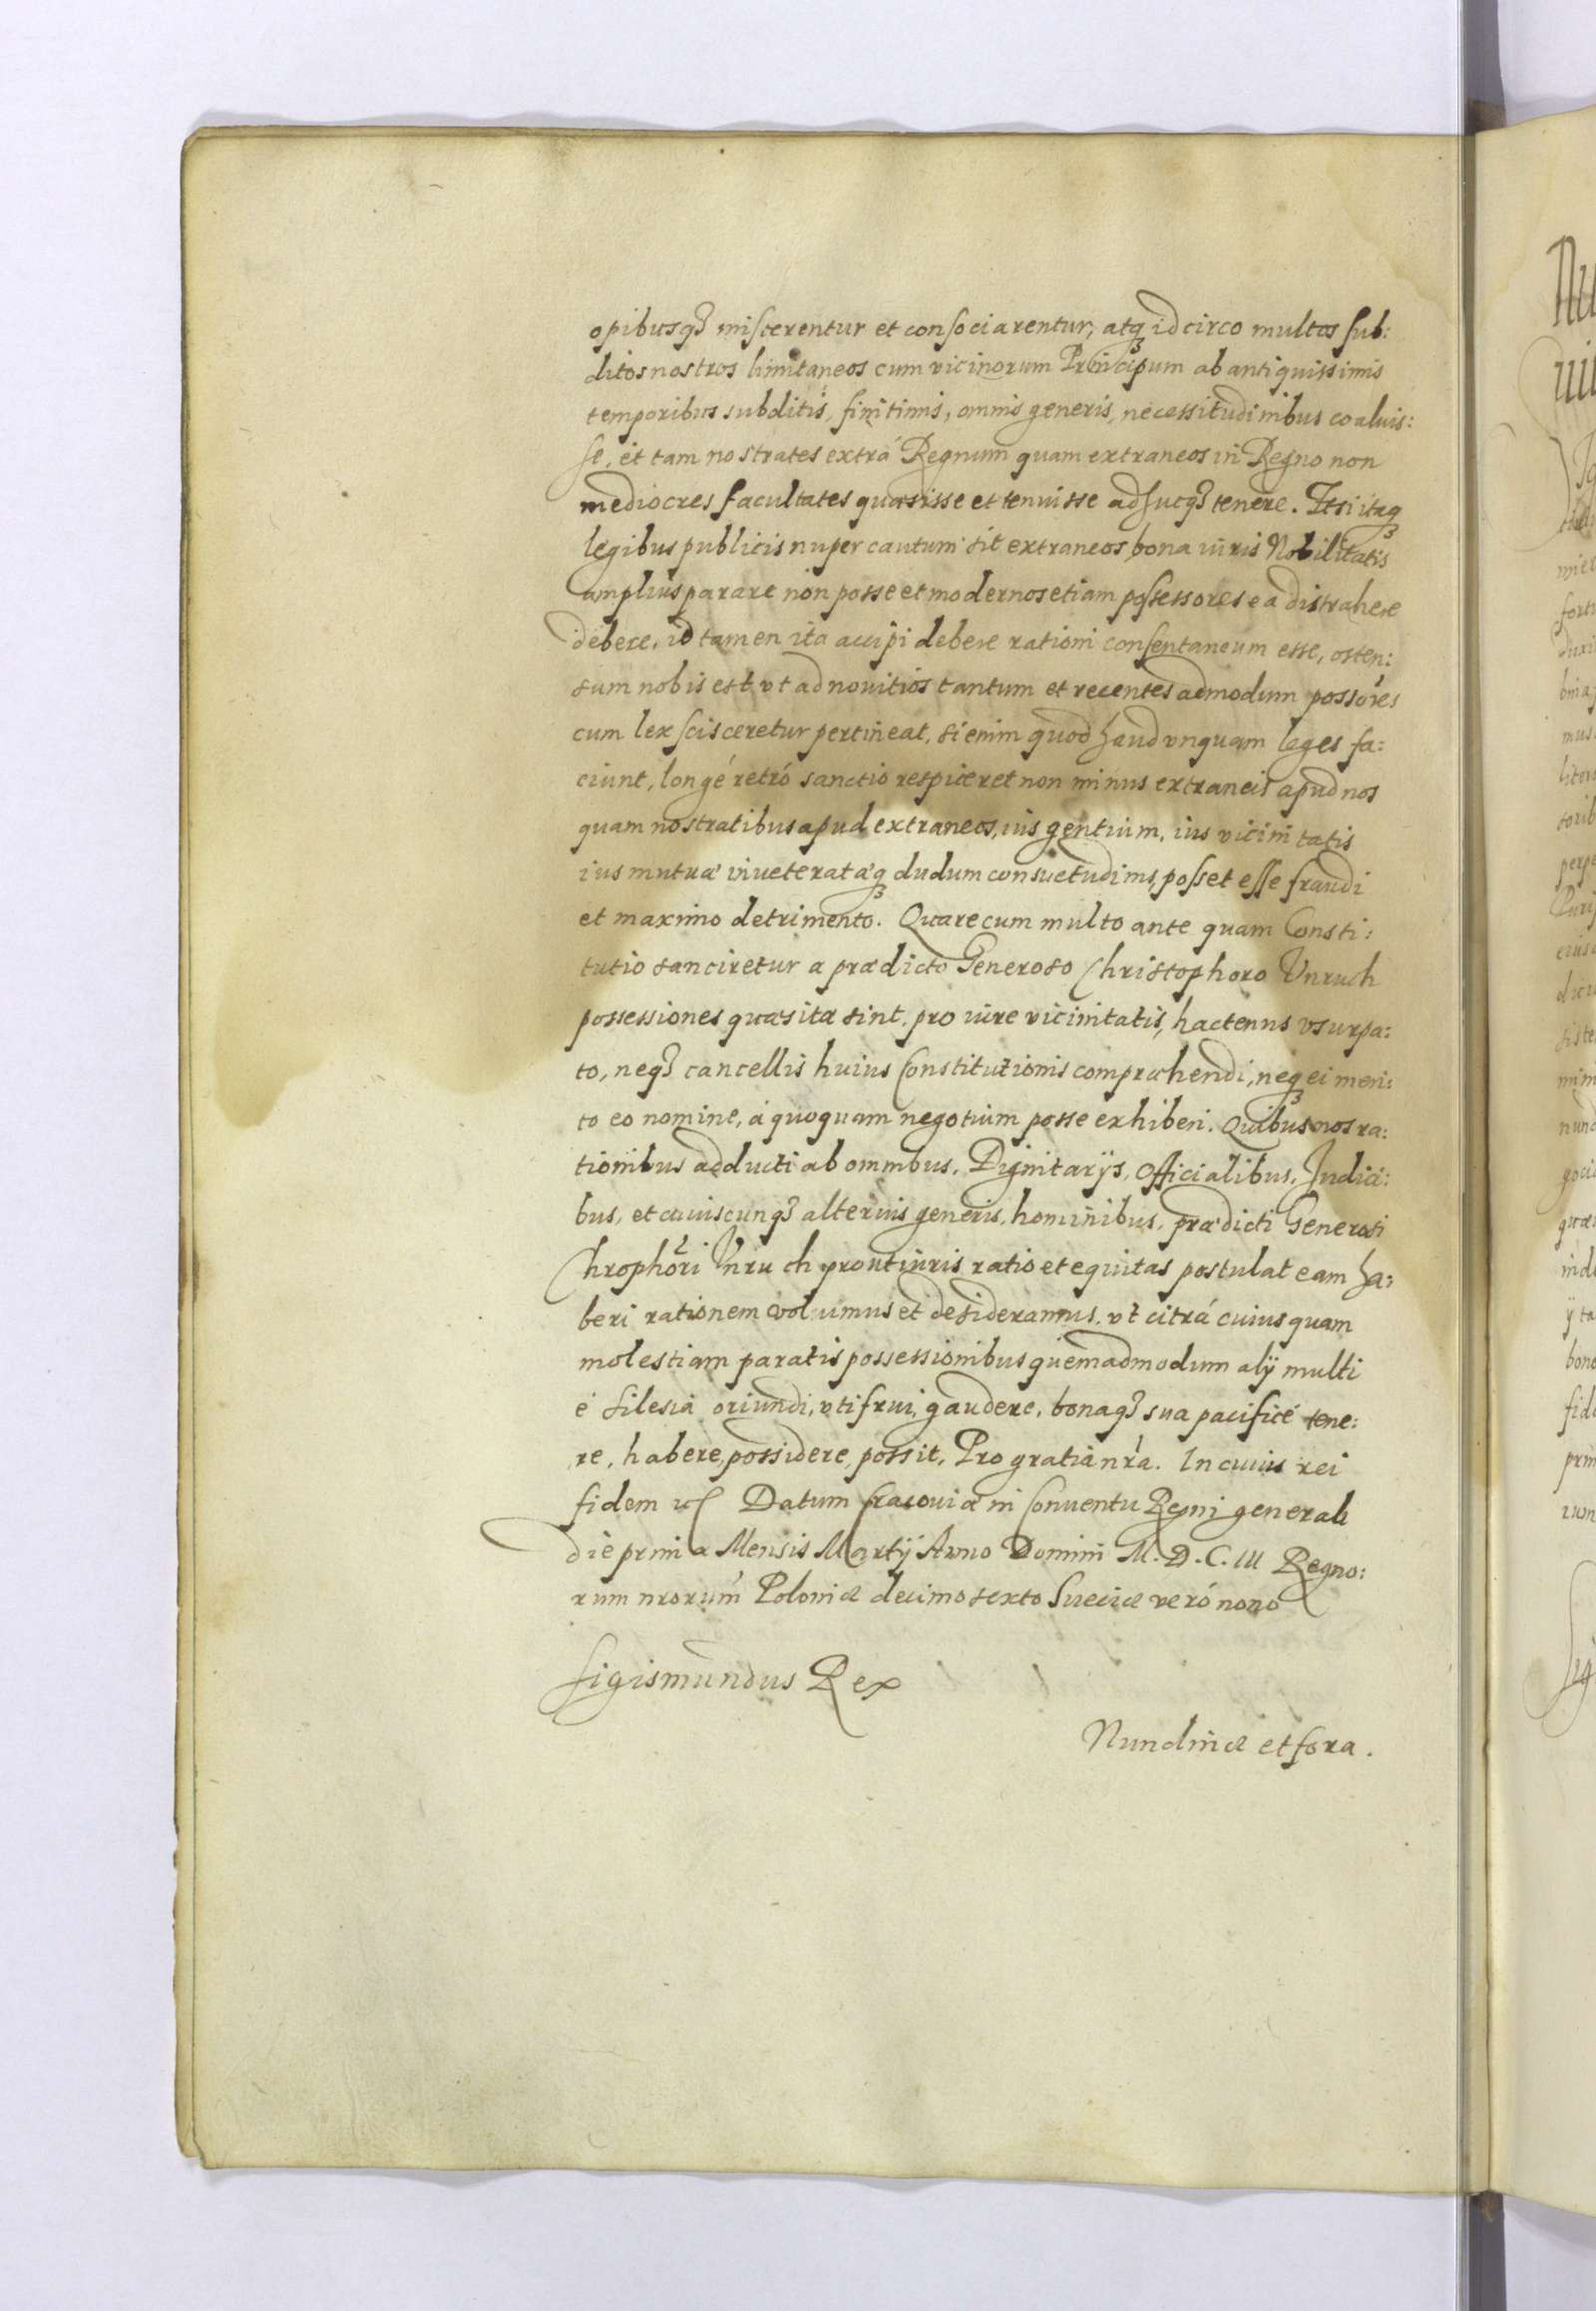 opibusq₃ miscerentur et consociarentur, atq₃ idcirco multos sub:
ditos nostros limitaneos cum vicinorum Principum ab antiquissimis
temporibus subditis, finitimis, omnis generis, necessitudinibus coaluis:
se, et tam nostrates extrá Regnum quam extraneos in Regno non
mediocres facultates quæsisse et tenuisse adhucq₃ tenere. Etsi itaq₃
legibus publicis nuper cautum sit extraneos bona iuris Nobilitatis
amplius parare non posse et modernos etiam possessores ea distrahere
debere, id tamen ita accipi debere rationi consentaneum esse, osten:
sum nobis est vt ad nouitios tantum et recentes admodum possores
cum lex scisceretur pertineat, si enim quod haud vnquam leges fa:
ciunt, longé retró sanctio respiceret non minus extraneis apud nos
quam nostratibus apud extraneos, ius gentium, ius vicinitatis
ius mutuæ inueteratæq₃ dudum consuetudinis, posset esse fraudi
et maximo detrimento. Quare cum multo ante quam Consti:
tutio sanciretur a prædicto Generoso Christophoro Vnruch
possessiones quæsitæ sint, pro iure vicinitatis, hactenus vsurpa:
to, neq₃ cancellis huius Constitutionis compræhendi, neq₃ ei meri:
to eo nomine, á quoquam negotium posse exhiberi. Quibus nos ra:
tionibus adducti ab omnibus, Dignitarijs, Officialibus, Judici:
bus, et cuiuscunq₃ alterius generis, hominibus, prædicti Generosi
Chrophori Vnruch prout iuris ratio et equitas postulat eam ha:
beri rationem volumus et desideramus, vt citrá cuiusquam
molestiam paratis possessionibus quemadmodum alij multi
é Silesia oriundi, vti frui, gaudere, bonaq₃ sua pacificé tene:
re, habere, possidere, possit, Pro gratia nra. In cuius rei
fidem etc Datum Cracouiæ in Conuentu Regni generali
die prima Mensis Martij Anno Domini M.D.C.III Regno:
rum nrorum Poloniæ decimo sexto Sueciæ veró nono
Sigismundus Rex
Nundinæ et fora.